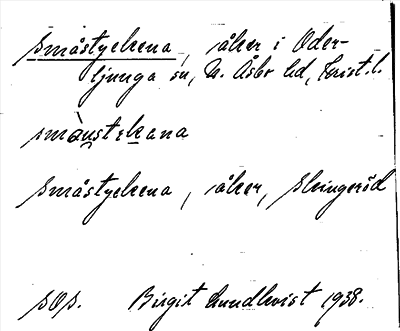 Småstyckena, åker i Oder-
ljunga sn, N. Åsbo hd, Krist. l.
småustskana
Småstyckena, åker, Skingeröd
sos. Birgit Lundkvist 1938.